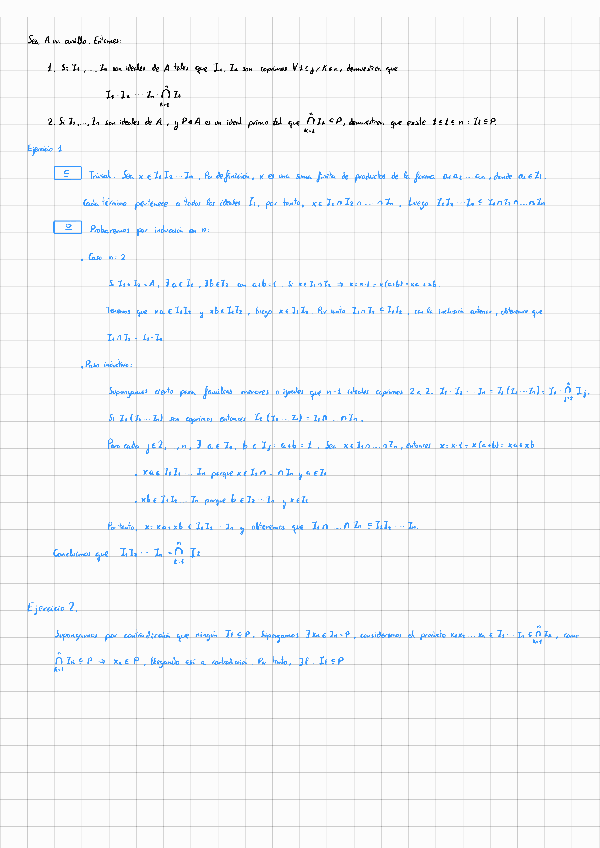 Sea A un anillo. Entonces:
1. Si I₁, ... Iₙ son ideales de A tales que Iₙ, Iₙ son coprimos ∀ 1≤j<k≤n, demuestra que
I₁·I₂ ··· Iₙ = ⋂ₖ₌₁ⁿ Iₖ
2. Si I₁,..., Iₙ son ideales de A, y P⊆A es un ideal primo tal que ⋂ₖ₌₁ⁿ Iₖ ⊆ P, demuestra que existe 1≤l≤n : Iₗ⊆P.
Ejercicio 1
⊆ Trivial. Sea x ∈ I₁I₂ ··· Iₙ. Por definición, x es una suma finita de productos de la forma a₁a₂ ··· aₙ, donde aᵢ∈Iᵢ.
Cada término pertenece a todos los ideales Iᵢ, por tanto, x ∈ I₁∩I₂∩...∩Iₙ. Luego I₁I₂ ··· Iₙ ⊆ I₁∩I₂∩...∩Iₙ
⊇ Probaremos por inducción en n:
• Caso n=2
Si I₁+I₂=A, ∃a∈I₁, ∃b∈I₂ a+b=1. Si x∈I₁∩I₂ → x=x·1=x(a+b)=xa+xb.
Tenemos que xa ∈ I₁I₂ y xb∈I₁I₂, luego x∈I₁I₂. Por tanto I₁∩I₂ ⊆ I₁I₂, con la inclusión anterior, obtenemos que
I₁∩I₂ = I₁·I₂
• Paso inductivo:
Supongamos cierto para familias menores o iguales que n-1 ideales coprimos 2 a 2. I₁·I₂ ··· Iₙ = I₁(I₂···Iₙ) = I₁·⋂ⱼ₌₂ⁿ Iⱼ.
Si I₁, (I₂···Iₙ) son coprimos entonces I₁(I₂···Iₙ) = I₁∩...∩Iₙ.
Para cada j∈2,...,n, ∃ a∈I₁, b∈Iⱼ : a+b=1. Sea x∈I₁∩...∩Iₙ, entonces x=x·1=x(a+b)=xa+xb
• xa∈I₁I₂...Iₙ porque x∈I₁∩...∩Iₙ y a∈I₁
• xb∈I₁I₂...Iₙ porque b∈I₂···Iₙ y x∈I₁
Por tanto, x=xa+xb ∈ I₁I₂···Iₙ y obtenemos que I₁∩...∩Iₙ ⊆ I₁I₂···Iₙ.
Concluimos que I₁I₂···Iₙ = ⋂ₖ₌₁ⁿ Iₖ
Ejercicio 2.
Supongamos por contradicción que ningún Iₗ⊆P. Supongamos ∃xₖ∈Iₖ-P, consideremos el producto x₁x₂...xₙ ∈ I₁···Iₙ ⊆ ⋂ₖ₌₁ⁿ Iₖ, como
⋂ₖ₌₁ⁿ Iₖ ⊆ P → xₖ∈P, llegando así a contradicción. Por tanto, ∃l : Iₗ⊆P